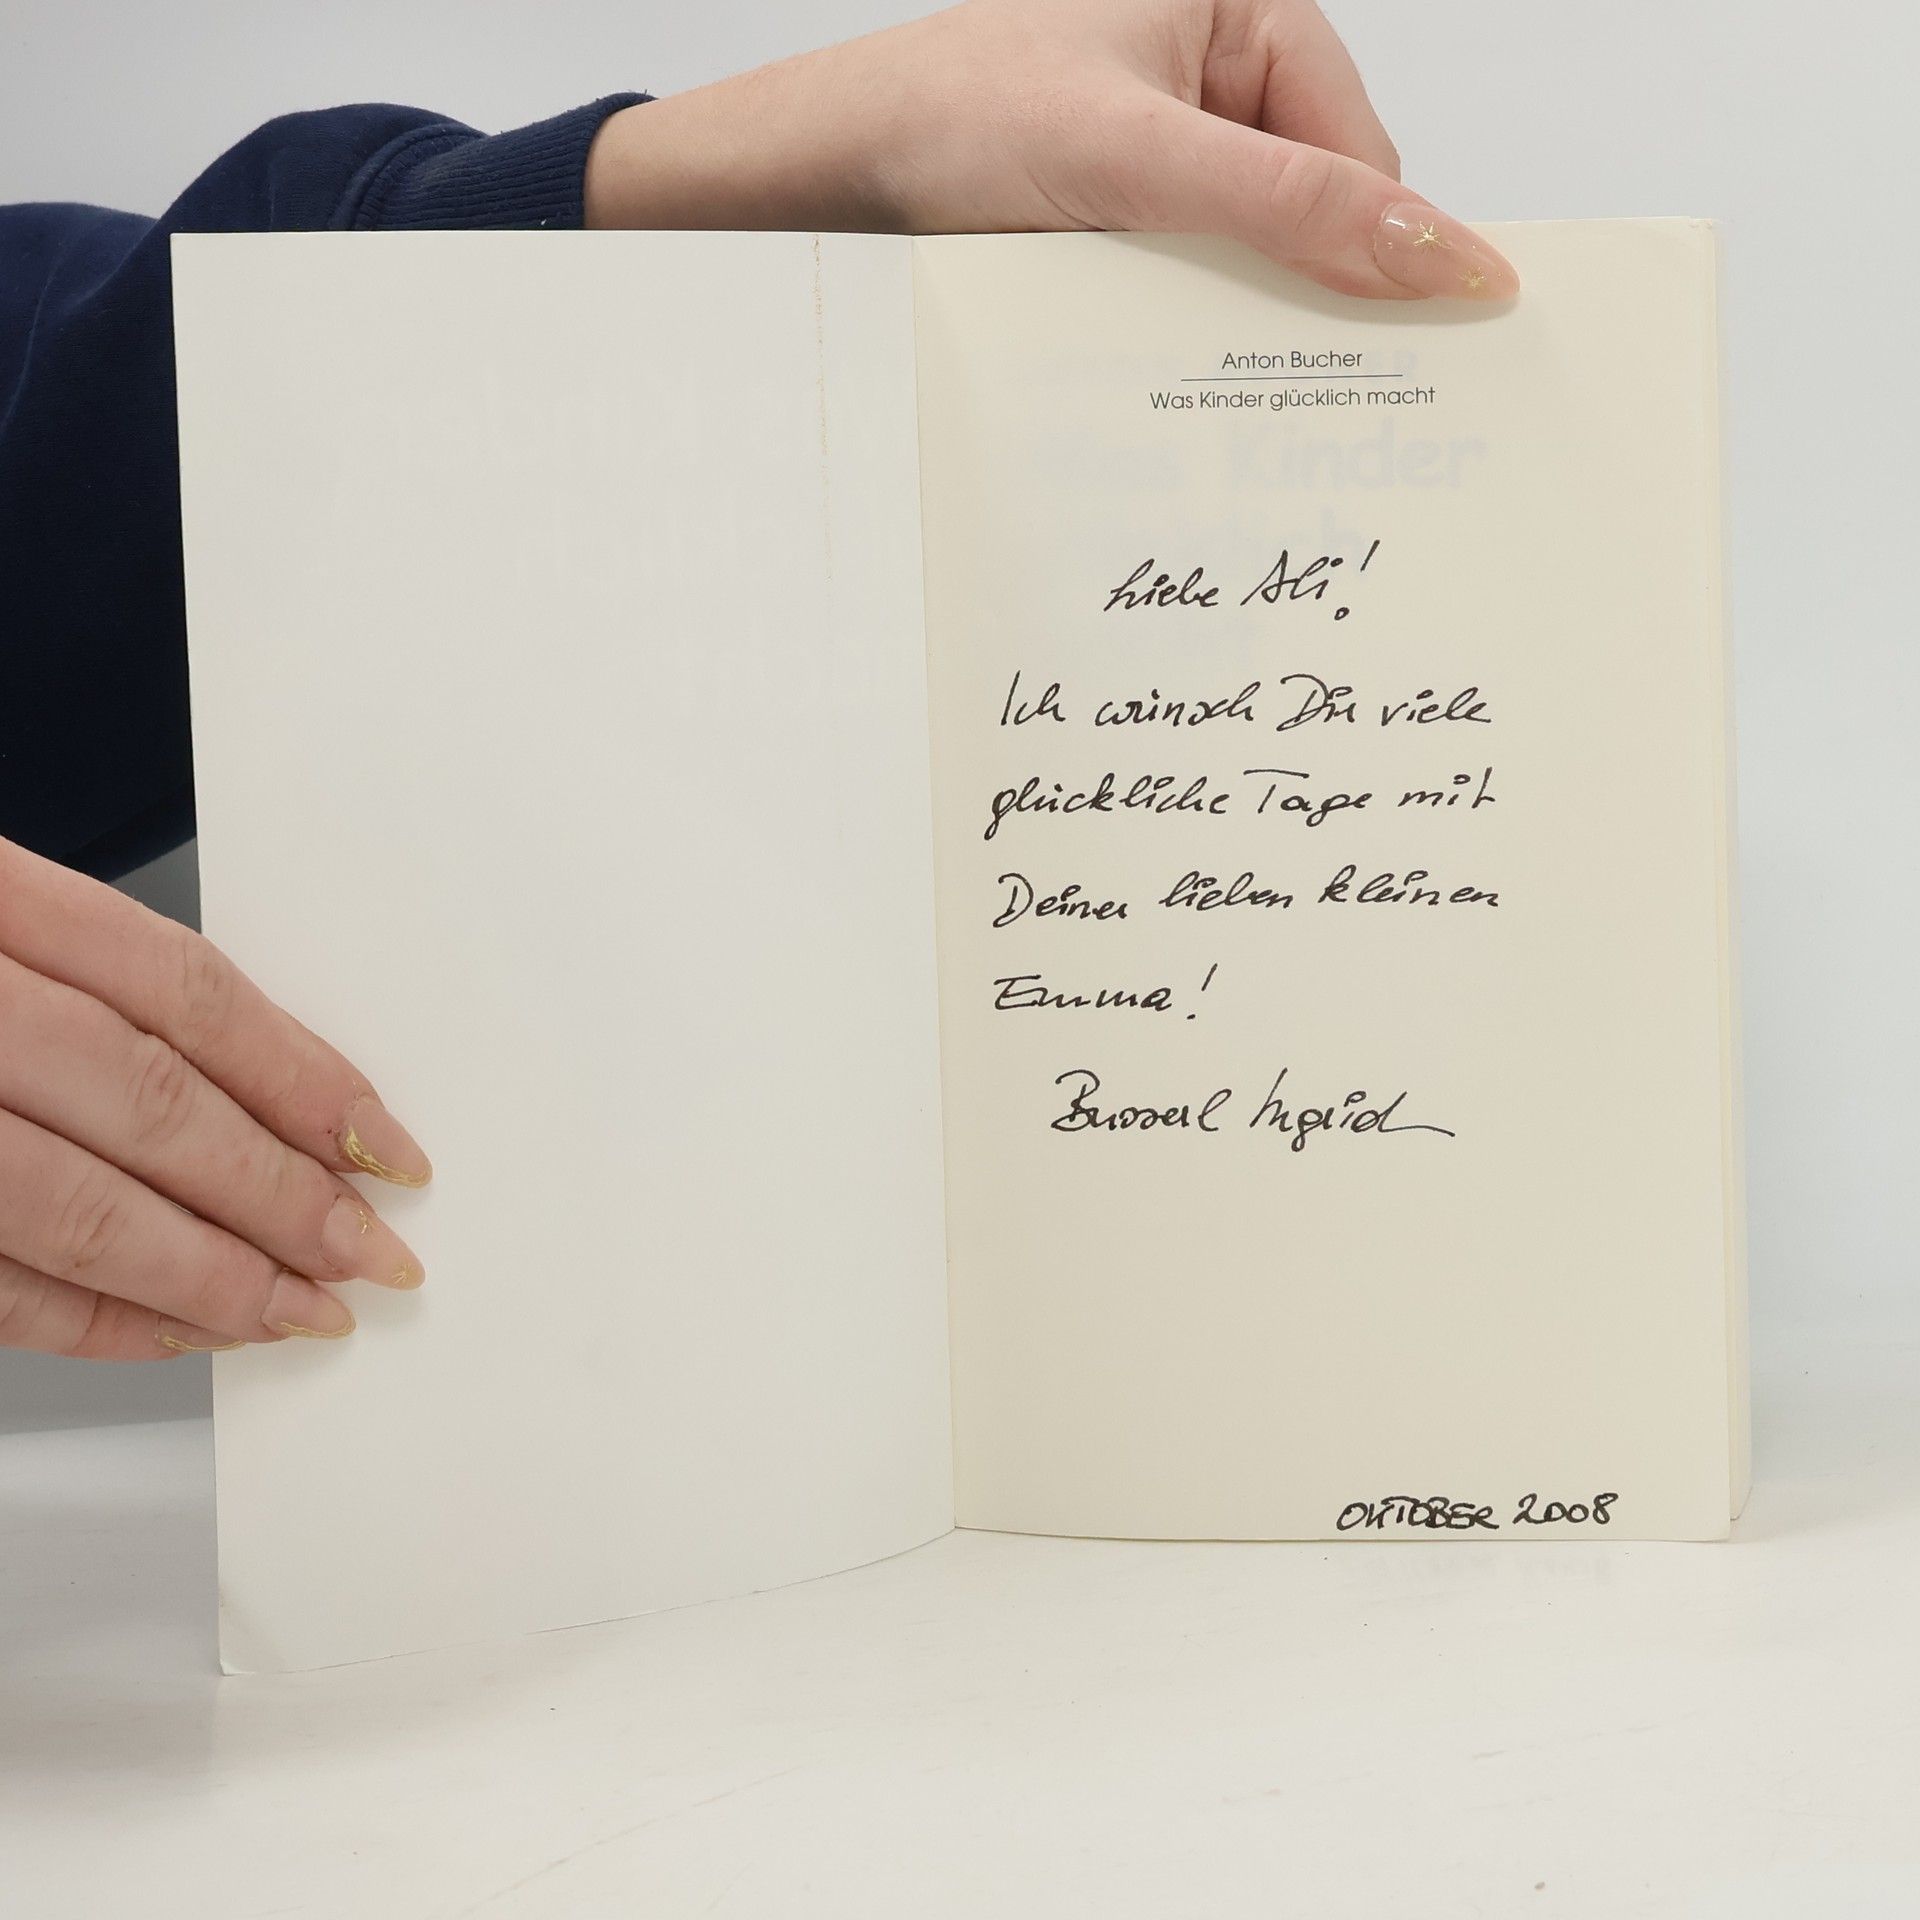 Anton Bucher
Was Kinder glücklich macht
Liebe Ali!
Ich wünsch Dir viele
glückliche Tage mit
Deiner lieben kleinen
Emma!
Busserl Ingrid
OKTOBER 2008